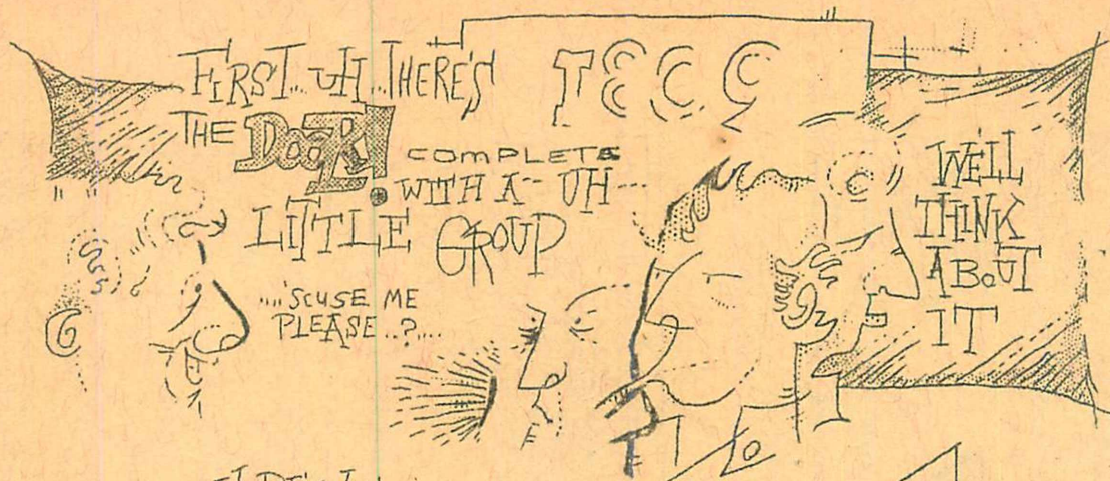 FIRST... UH...THERE'S
THE DOOR!
COMPLETE
WITH A -- UH --
LITTLE GROUP
....'SCUSE ME
PLEASE..?....
WE'LL
THINK
ABOUT
IT